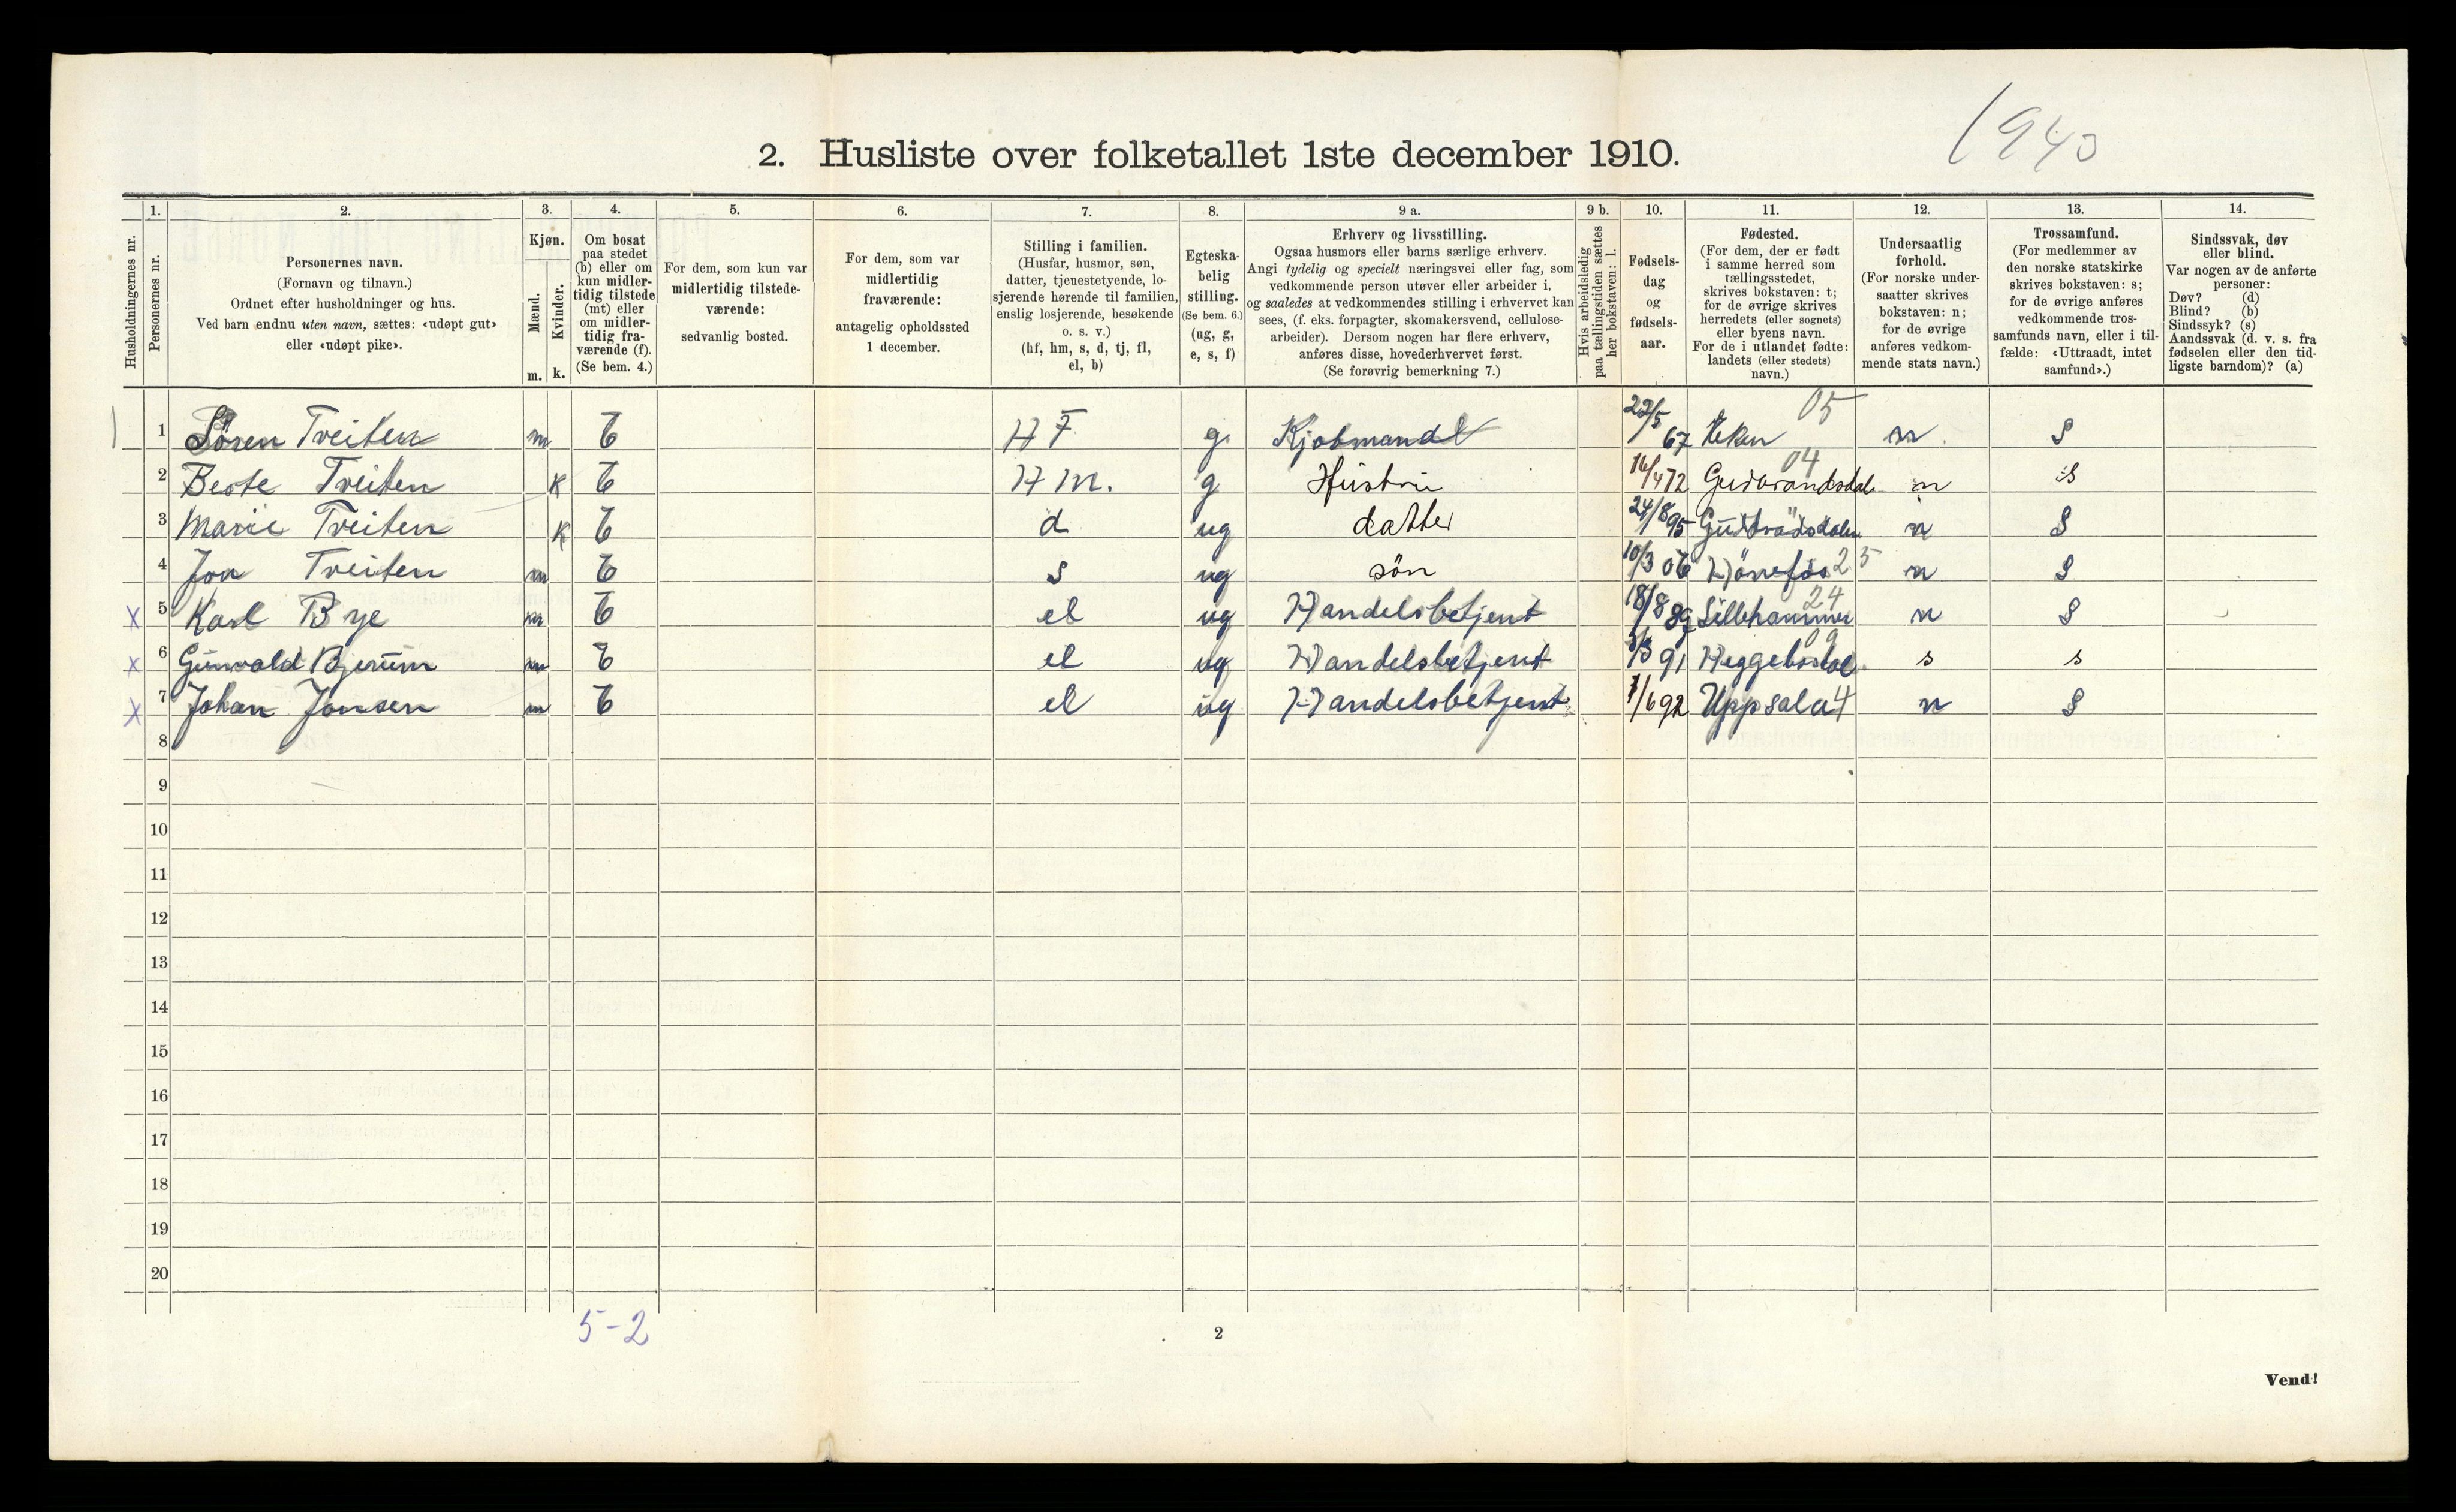 1940
2. Husliste over folketallet 1ste december 1910.
1. 2. 3. 4. 5. 6. 7. 8. 9 a. 9 b. 10. 11. 12. 13. 14.
Husholdningernes nr.
Personernes nr.
Personernes navn.
(Fornavn og tilnavn.)
Ordnet efter husholdninger og hus.
Ved barn endnu uten navn, sættes: «udøpt gut»
eller «udøpt pike».
Kjøn.
Mænd.
m.
Kvinder.
k.
Om bosat
paa stedet
(b) eller om
kun midler-
tidig tilstede
(mt) eller
om midler-
tidig fra-
værende (f).
(Se bem. 4.)
For dem, som kun var
midlertidig tilstede-
værende:
sedvanlig bosted.
For dem, som var
midlertidig
fraværende:
antagelig opholdssted
1 december.
Stilling i familien.
(Husfar, husmor, søn,
datter, tjenestetyende, lo-
sjerende hørende til familien,
enslig losjerende, besøkende
o. s. v.)
(hf, hm, s, d, tj, fl,
el, b)
Egteska-
belig
stilling.
(Se bem. 6.)
(ug, g,
e, s, f)
Erhverv og livsstilling.
Ogsaa husmors eller barns særlige erhverv.
Angi tydelig og specielt næringsvei eller fag, som
vedkommende person utøver eller arbeider i,
og saaledes at vedkommendes stilling i erhvervet kan
sees, (f. eks. forpagter, skomakersvend, cellulose-
arbeider). Dersom nogen har flere erhverv,
anføres disse, hovederhvervet først.
(Se forøvrig bemerkning 7.)
Hvis arbeidsledig
paa tællingstiden sættes
her bokstaven: l.
Fødsels-
dag
og
fødsels-
aar.
Fødested.
(For dem, der er født
i samme herred som
tællingsstedet,
skrives bokstaven: t;
for de øvrige skrives
herredets (eller sognets)
eller byens navn.
For de i utlandet fødte:
landets (eller stedets)
navn.)
Undersaatlig
forhold.
(For norske under-
saatter skrives
bokstaven: n;
for de øvrige
anføres vedkom-
mende stats navn.)
Trossamfund.
(For medlemmer av
den norske statskirke
skrives bokstaven: s;
for de øvrige anføres
vedkommende tros-
samfunds navn, eller i til-
fælde: «Uttraadt, intet
samfund».)
Sindssvak, døv
eller blind.
Var nogen av de anførte
personer:
Døv? (d)
Blind? (b)
Sindssyk? (s)
Aandssvak (d. v. s. fra
fødselen eller den tid-
ligste barndom)? (a)
1 1 Sören Treiten m b HF g. Kjøbmand 22/5 67 05 n. S
2 Beate Treiten k b Hm. g Hüstru 16/4 72 Gudbrandsdal 04 n S
3 Marie Treiten k b d ug datter 24/8 95 n S
4 Jon Treiten m b s ug søn 10/3 06 Hönefos 25 n S
x 5 Karl Bye m b el ug Handelsbetjent 18/8 89 Lillehammer 24 n S
x 6 Gunvald Bjerüm m b el ug Handelsbetjent 91 09 s s
x 7 Johan Jonsen m b el ug Handelsbetjent 1/6 92 Uppsala 4 n S
8
9
10
11
12
13
14
15
16
17
18
19
20
5-2
2
Vend!